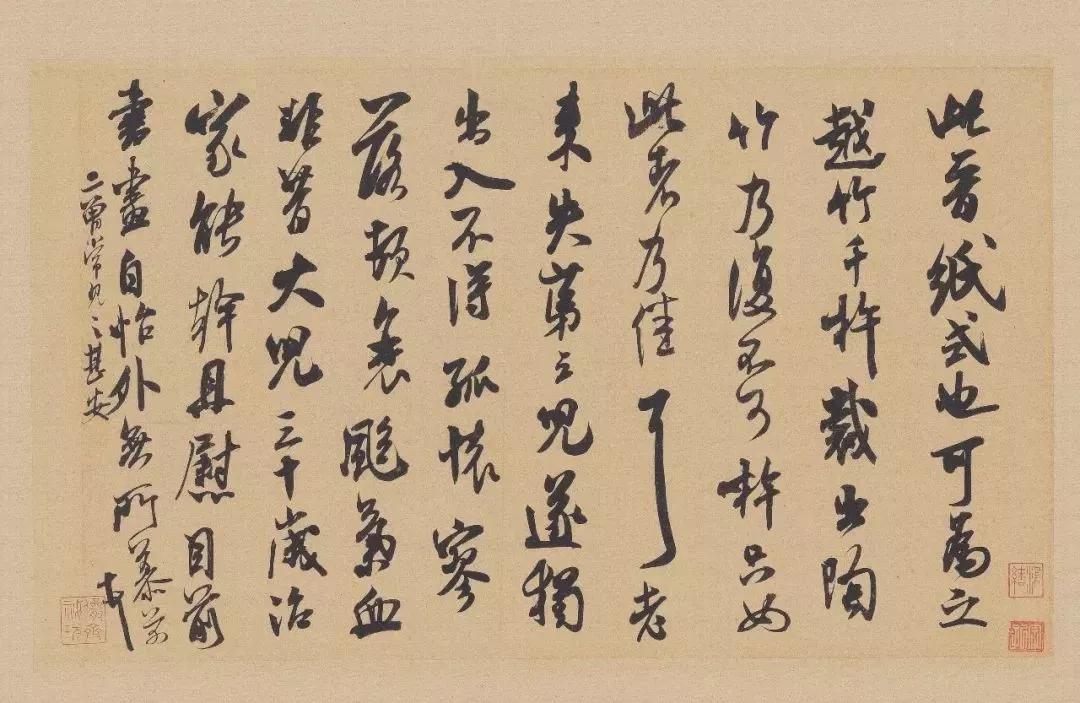 此晉紙式也可為之
越竹千杵裁出陶
竹乃復不可杵只如
此者乃佳耳老
来失第三兒遂獨
出入不得孤懷寥
落頓衰颯氣血
非昔大兒三十歲治
家能幹且慰目前
書畫自怡外無所慕芾
二曾常見之甚安